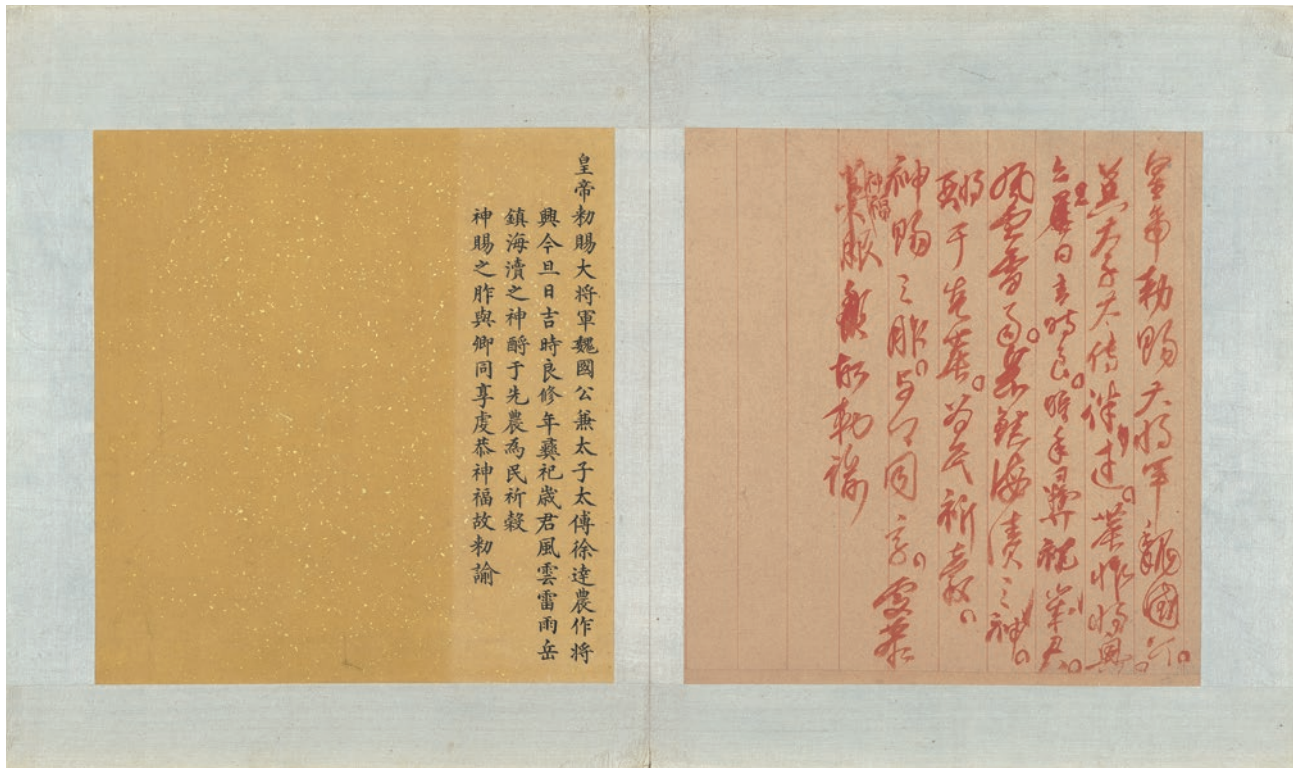 皇帝勅賜大将軍魏國公。
兼太子太傅徐達。農作将興
今旦日吉時良。修年彝祀歲君。
風雲雷雨。岳鎮海瀆之神。
酹于先農。為民祈穀。
神賜之胙。与卿同享。虔恭
神福
故勅諭
皇帝勑賜大将軍魏國公兼太子太傅徐達農作将
興今旦日吉時良修年彝祀歲君風雲雷雨岳
鎮海瀆之神酹于先農為民祈穀
神賜之胙與卿同享虔恭神福故勑諭